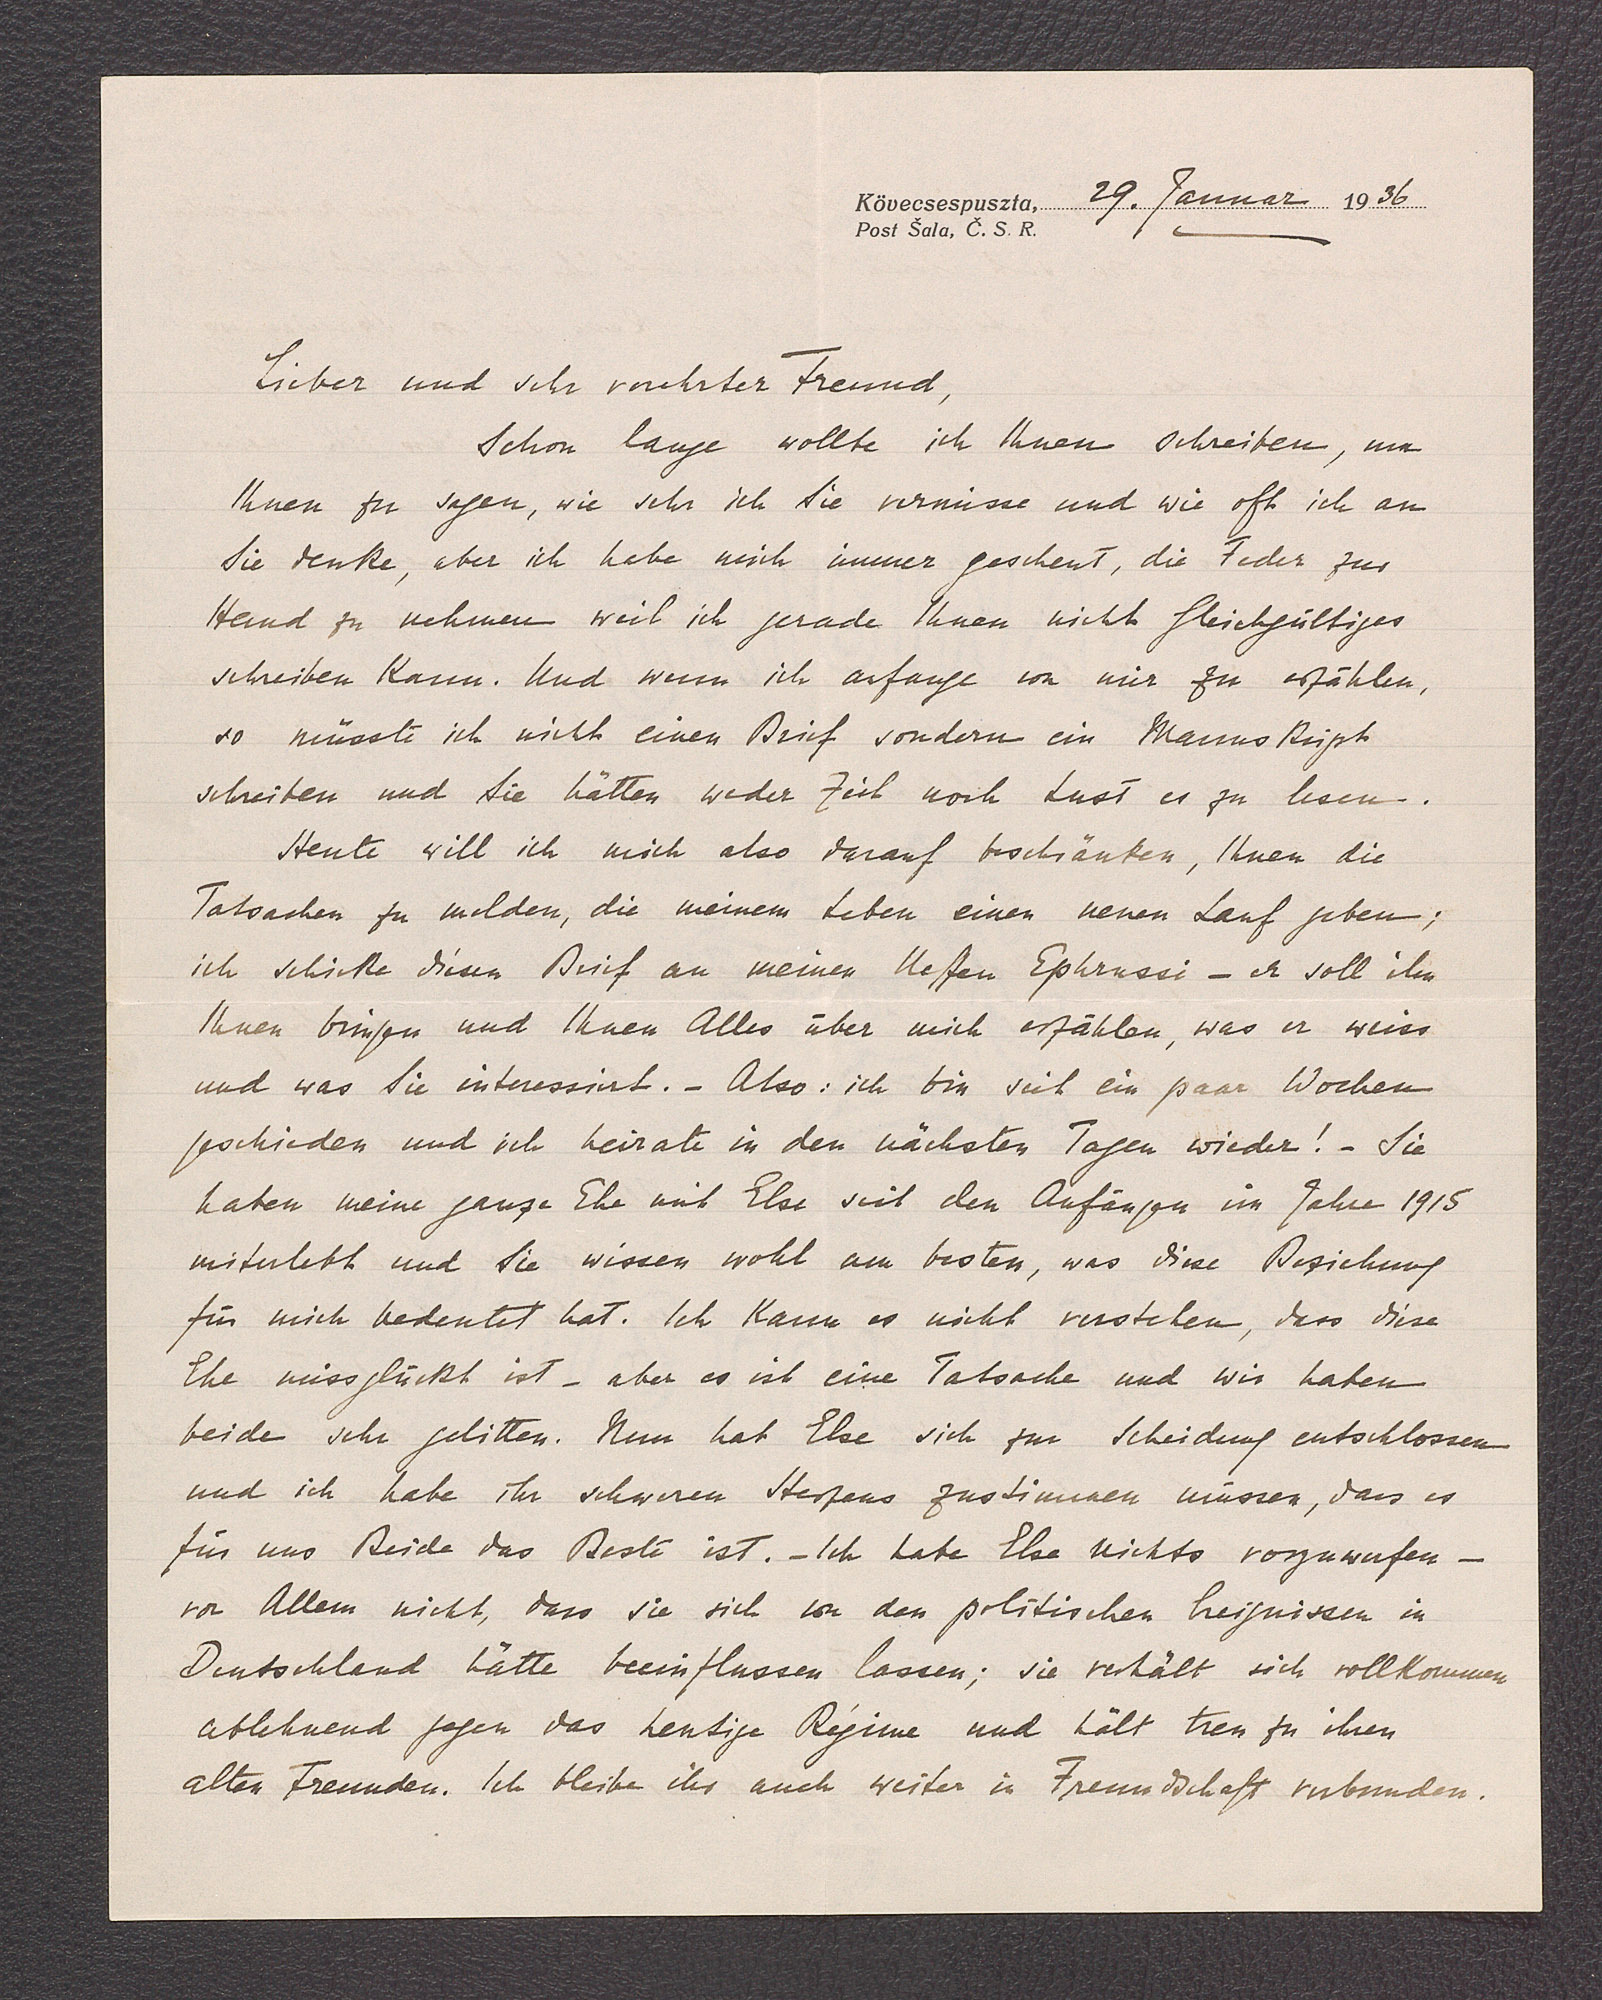 Kövecsespuszta, 29. Januar 1936
Post Šala, Č. S. R.
Lieber und sehr verehrter Freund,
Schon lange wollte ich Ihnen schreiben, um
Ihnen zu sagen, wie sehr ich Sie vermisse und wie oft ich an
Sie denke, aber ich habe mich immer gescheut, die Feder zur
Hand zu nehmen weil ich gerade Ihnen nicht Gleichgültiges
schreiben kann. Und wenn ich anfange von mir zu erzählen,
so müsste ich nicht einen Brief sondern ein Manuskript
schreiben und Sie hätten weder Zeit noch Lust es zu lesen.
Heute will ich mich also darauf beschränken, Ihnen die
Tatsachen zu melden, die meinem Leben einen neuen Lauf geben;
ich schicke diesen Brief an meinen Neffen Ephrussi - er soll ihn
Ihnen bringen und Ihnen Alles über mich erzählen, was er weiss
und was Sie interessiert. - Also: ich bin seit ein paar Wochen
geschieden und ich heirate in den nächsten Tagen wieder! - Sie
haben meine ganze Ehe mit Else seit den Anfängen im Jahre 1915
miterlebt und Sie wissen wohl am besten, was diese Beziehung
für mich bedeutet hat. Ich kann es nicht verstehen, dass diese
Ehe missglückt ist - aber es ist eine Tatsache und wir haben
beide sehr gelitten. Nun hat Else sich zur Scheidung entschlossen
und ich habe ihr schweren Herzens zustimmen müssen, dass es
für uns Beide das Beste ist. - Ich habe Else nichts vorzuwerfen -
vor Allem nicht, dass sie sich von den politischen Ereignissen in
Deutschland hätte beeinflussen lassen; sie verhält sich vollkommen
ablehnend gegen das heutige Régime und hält treu zu ihren
alten Freunden. Ich bleibe ihr auch weiter in Freundschaft verbunden.